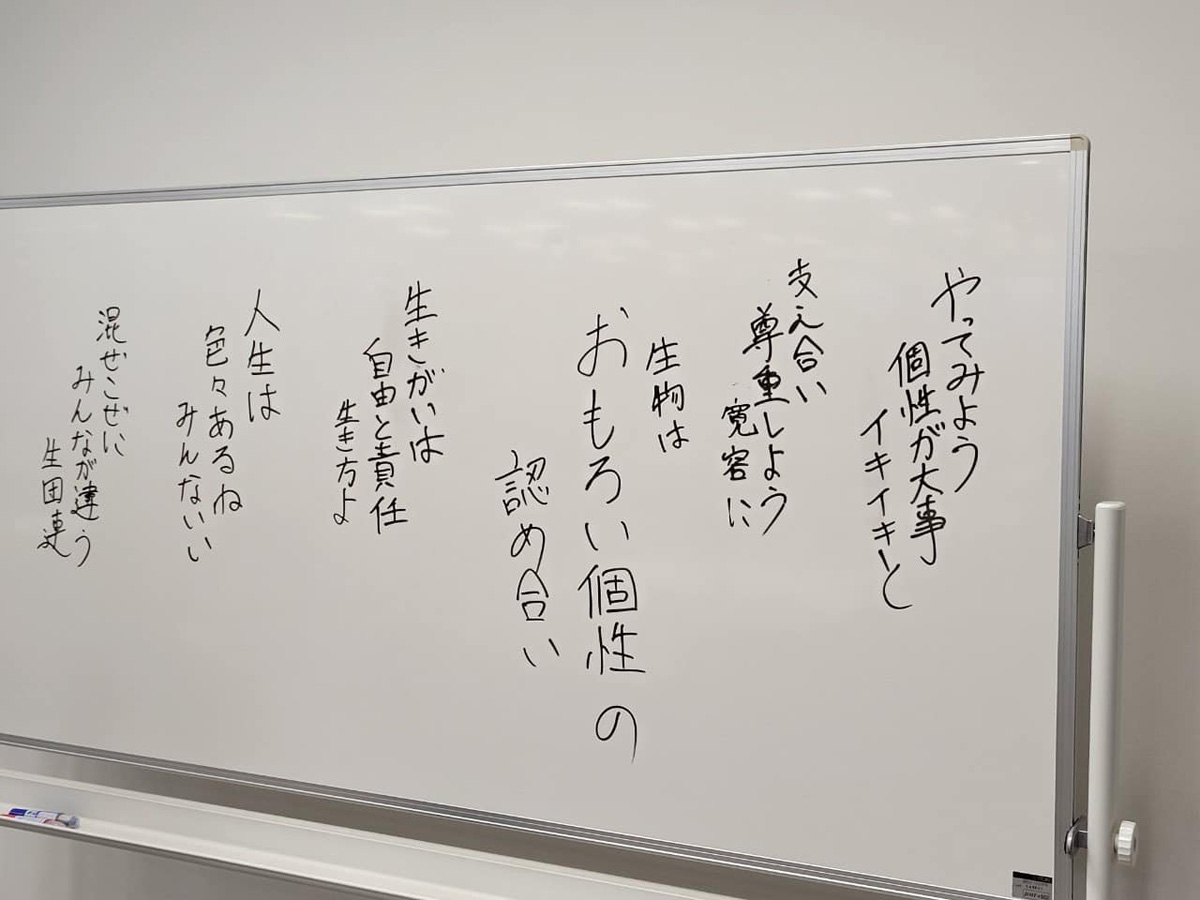 やってみよう
個性が大事
イキイキと
支え合い
尊重しよう
寛容に
生物は
おもろい個性の
認め合い
生きがいは
自由と責任
生き方よ
人生は
色々あるね
みんないい
混ぜこぜに
みんなが違う
生団連